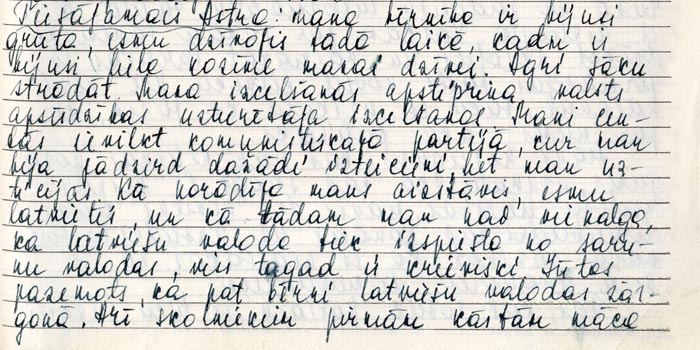 Tiesājamais Astra: mana bērnība ir bijusi
grūta, esmu dzīvojis tādā laikā, kādu ir
bijusi liela nozīme manai dzīvei. Agri sāku
strādāt. Mana izcelšanās apstiprina valsts
apsūdzības uzturētāja izcelšanos. Mani cen-
tās ievilkt komunistiskajā partijā, kur man
bija jādzird dažādi izteicieni, bet man uz-
ticējās. Kā norādīja mans aizstāvis, esmu
latvietis, un kā tādam man nav vienalga,
ka latviešu valoda tiek izspiesta no saru-
nu valodas, viss tagad ir krieviski. Jūtos
pazemots, ka pat bērni latviešu valodas žar-
gonā. Arī skolniekiem pirmām kārtām māca